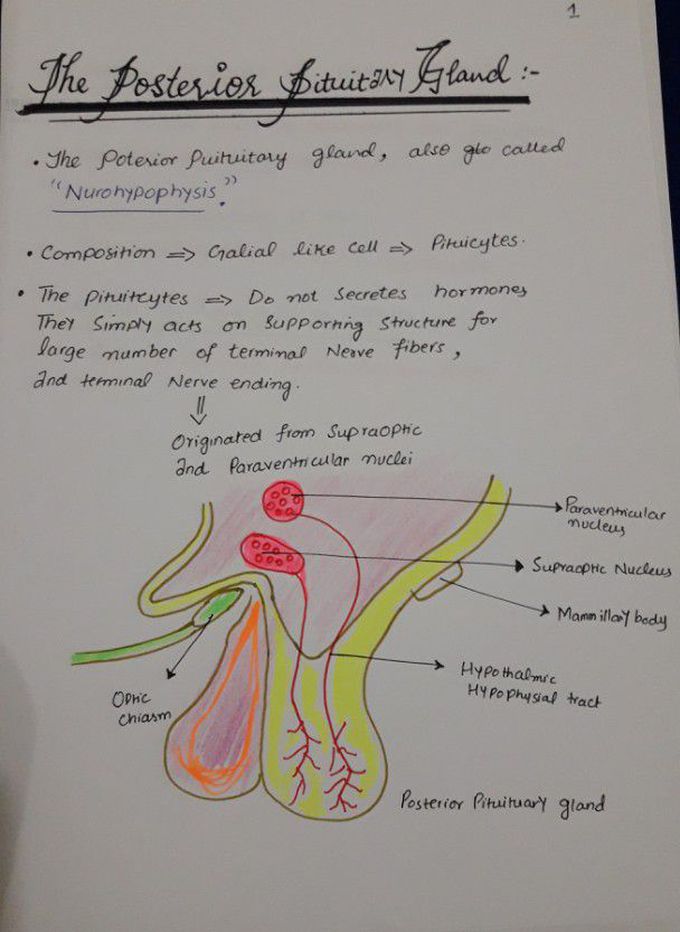 1
The Posterior Pituitary Gland :-
• The Poterior Puituitary gland, also glo called
"Nurohypophysis".
• Composition => Galial like cell => Pituicytes.
• The Pituitcytes => Do not Secretes hormones
They Simply acts on Supporting Structure for
large number of terminal Nerve fibers,
and terminal Nerve ending.
⇓
Originated from Supraoptic
and Paraventricular nuclei
Paraventricular
nucleus
Supraoptic Nucleus
Mammillary body
Hypothalmic
Hypophysial tract
Optic
chiasm
Posterior Pituituary gland